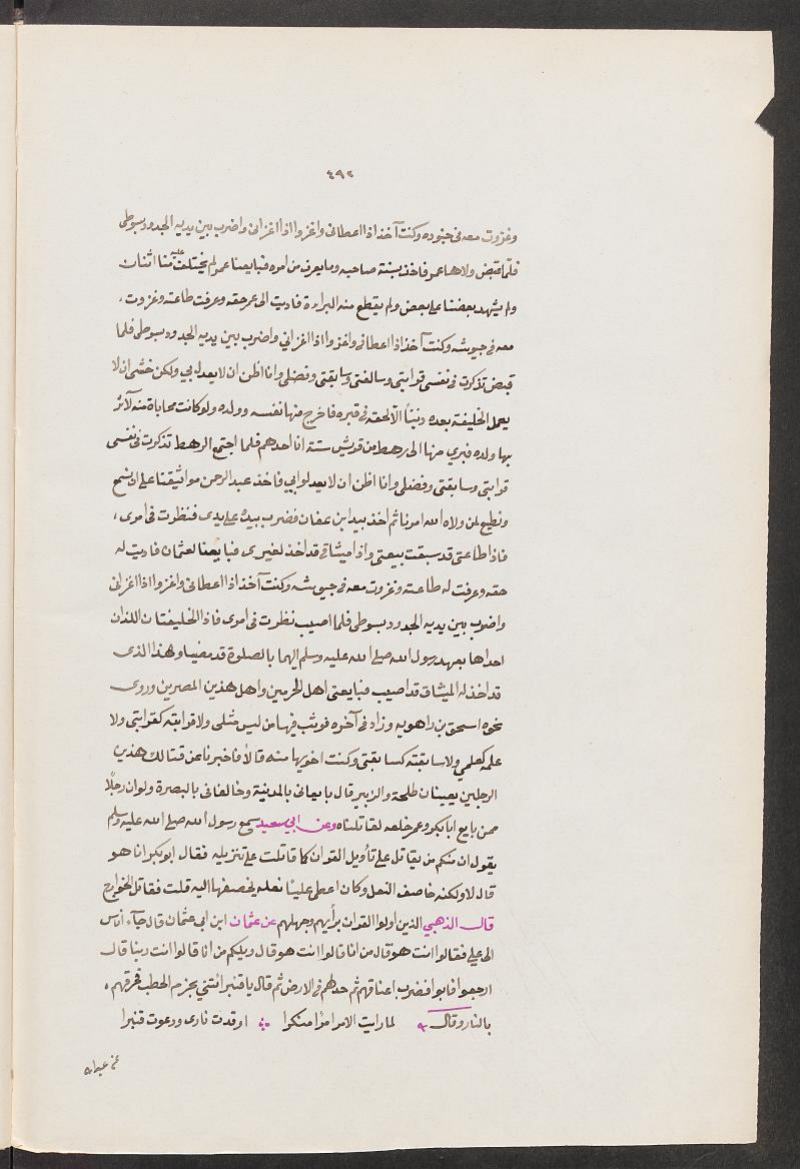 ٤٩٢
وغزوت معه في جنوده وكنت آخذ اذا اعطاني واغزوا اذا اغزاني واضرب بين يديه الحدود بسوطي
فلما قبض ولاها عمر فاخذ بسنة صاحبه وما يعرف من امره فبايعنا عمر لم يختلف عليه منا اثنان
ولم يشهد بعضنا على بعض ولم يقطع منه البراءة فاديت الى عمر حقه وعرفت طاعته وغزوت،
معه في جيوشه وكنت آخذ اذا اعطاني واغزوا اذا اغزاني واضرب بين يديه الحدود بسوطي فلما
قبض تذكرت في نفسي قرابتي وسالفتي وسابقتي وفضلي وانا اظن ان لا يعدل بي ولكن خشى ان لا
يعمل الخليفة بعده ذنبًا الا لحقه في قبره فاخرج منها نفسه وولده ولو كانت محاباة منه لآثر
بها ولده فبري منها الى رهط من قريش ستة انا احدهم فلما اجتمع الرهط تذكرت في نفسي
قرابتي وسابقتي وفضلي وانا اظن ان لا يعدلوا بي فاخذ عبد الرحمن مواثيقنا على ان نسمع
ونطيع لمن ولاه الله امرنا ثم اخذ بيد ابن عفان فضرب بيده على يدى فنظرت في امرى،
فاذا طاعتى قد سبقت بيعتي واذا ميثاقي قد اخذ لغيرى فبايعنا لعثمان فاديت له
حقه وعرفت له طاعته وغزوت معه في جيوشه وكنت آخذ اذا اعطاني واغزوا اذا اغزاني
واضرب بين يديه الحدود بسوطي فلما اصيب نظرت في امرى فاذا الخليفتان اللذان
اخذاها بعهد رسول الله صلى الله عليه وسلم اليهما بالصلوة قد مضيا وهذا الذى
قد اخذ له الميثاق قد اصيب فبايعني اهل الحرمين واهل هذين المصرين وروى
نحوه اسحق بن راهويه وزاد في آخره فوثب فيها من ليس مثلي ولا قرابته كقرابتي ولا
علمه كعلمي ولا سابقته كسابقتي وكنت احق بها منه قالا فاخبرنا عن قتالك هذين
الرجلين يعينان طلحة والزبير قال بايعاني بالمدينة وخالفاني بالبصرة ولو ان رجلًا
ممن بايع ابا بكر وعمر خلعه لقاتلناه وعن ابي سعيد سمع رسول الله صلى الله عليه وسلم
يقول ان منكم من يقاتل على تأويل القران كما قاتلت على تنزيله فقال ابو بكر انا هو
قال لا ولكنه خاصف النعل وكان اعطى عليًا نعله يخصفها اليه قلت فقاتل الخوارج
قال الذهبي الذين اولوا القران برأيهم وجهلهم عن عثمان ابن ابي عثمان قال جآء اناس
الى علي فقالوا انت هو قال من انا قالوا انت هو قال ويلكم من انا قالوا انت ربنا قال
ارجعوا فابوا فضرب اعناقهم ثم خد لهم في الارض ثم قال يا قنبر ائتني بحزم الحطب فحرقهم،
بالنار وقال لما رايت الامر امرًا منكرا اوقدت نارى ودعوت قنبرا